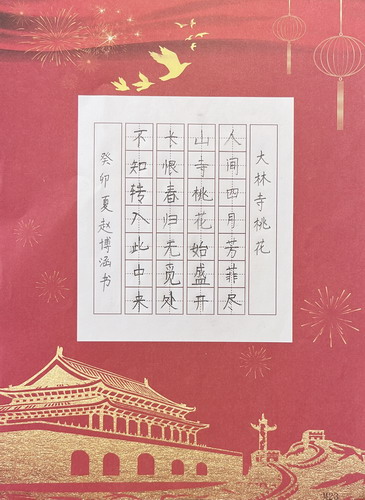 大林寺桃花
人间四月芳菲尽
山寺桃花始盛开
长恨春归无觅处
不知转入此中来
癸卯夏赵博涵书